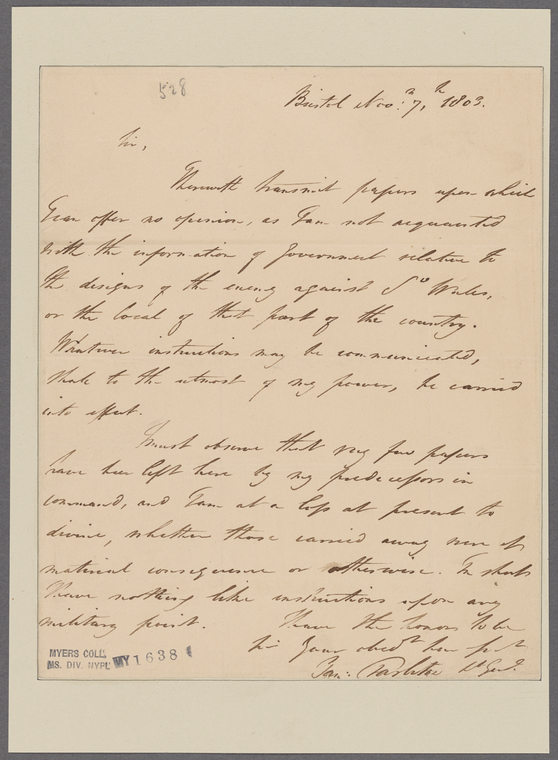 528
Bristol Nov:r 7th, 1803.
Sir,
I herewith transmit papers upon which
I can offer no opinion, as I am not acquainted
with the information of Government relative to
the designs of the enemy against So Wales,
or the local of that part of the country.
Whatever instructions may be communicated,
shall to the utmost of my power, be carried
into effect.
I must observe that very few papers
have been left here by my predecessors in
command, and I am at a loss at present to
divine, whether those carried away were of
material consequence or otherwise. In short
I have nothing like instructions upon any
military point. I have the honor to be
Sir Your obedt hum sert
Ban: Tarleton Lt Genl.
MYERS COLL.
MS. DIV. NYPL
MY 1638